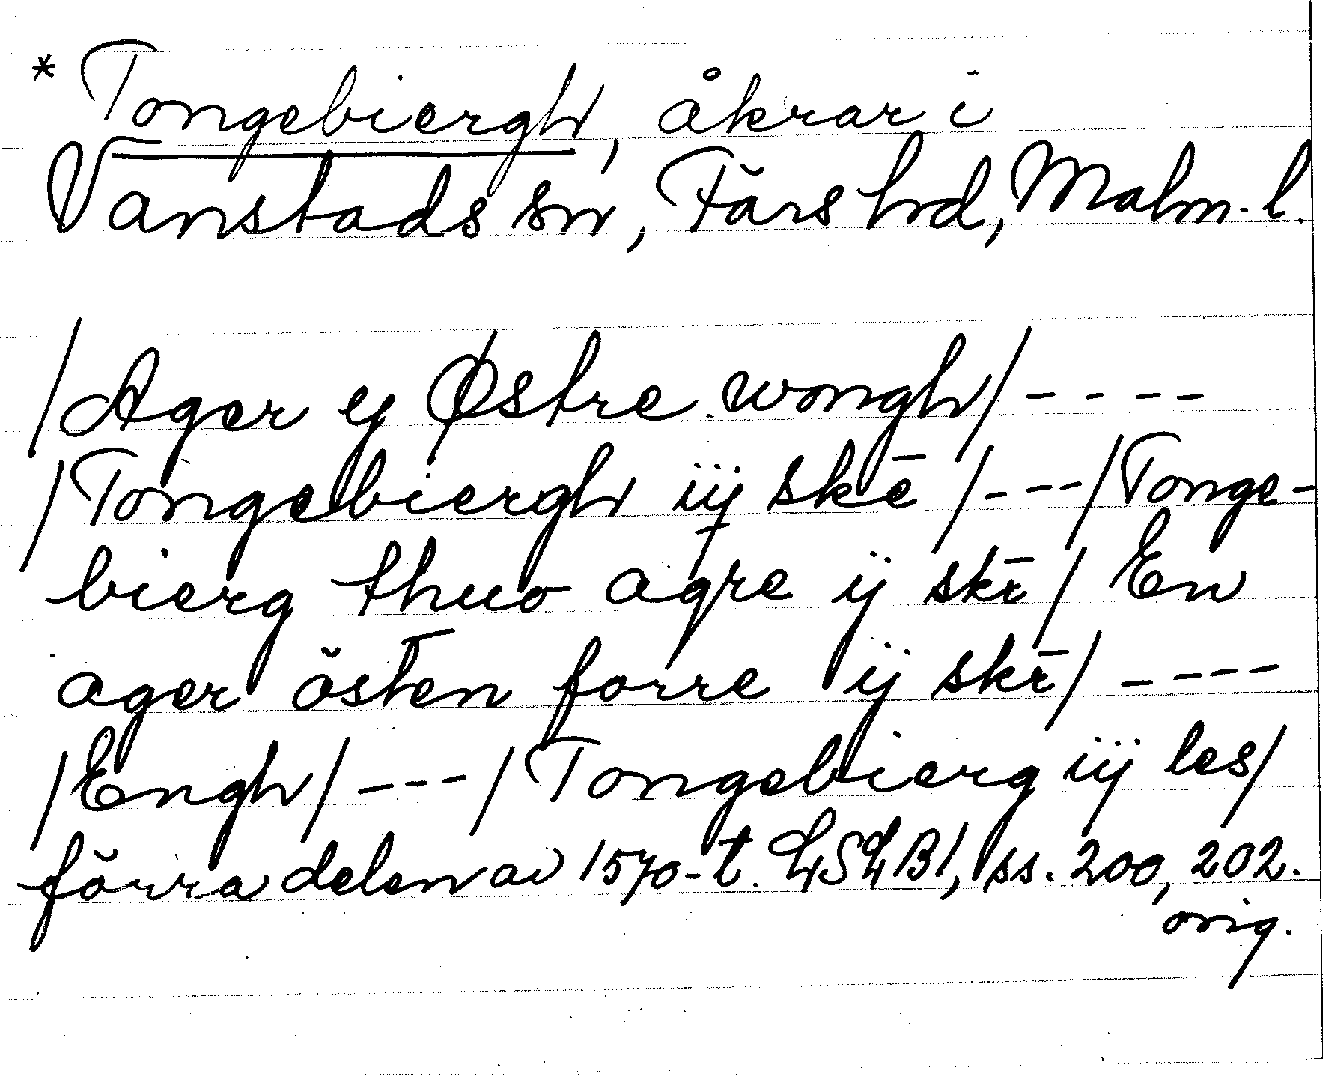 * Tongebiergh, åkrar i
Vanstads sn, Färs hd, Malm. l.
/Ager ÿ Østre wongh/----
/Tongebiergh iij skē /---/Tonge-
bierg thuo agre ij skr̄/ En
ager östen forre ij skr̄/ ----
/Engh/---/Tongebierg iij les/
förra delen av 1570-t. LSLB1, ss. 200, 202.
orig.